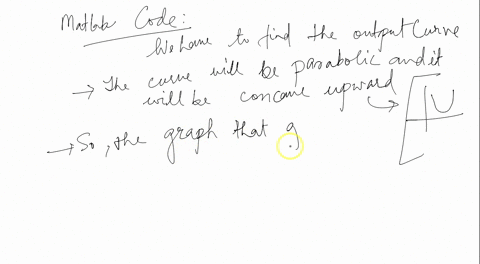 Matlab Code:
We have to find the output Curve
→ The curve will be parabolic and it
will be concave upward
→ So, the graph that g